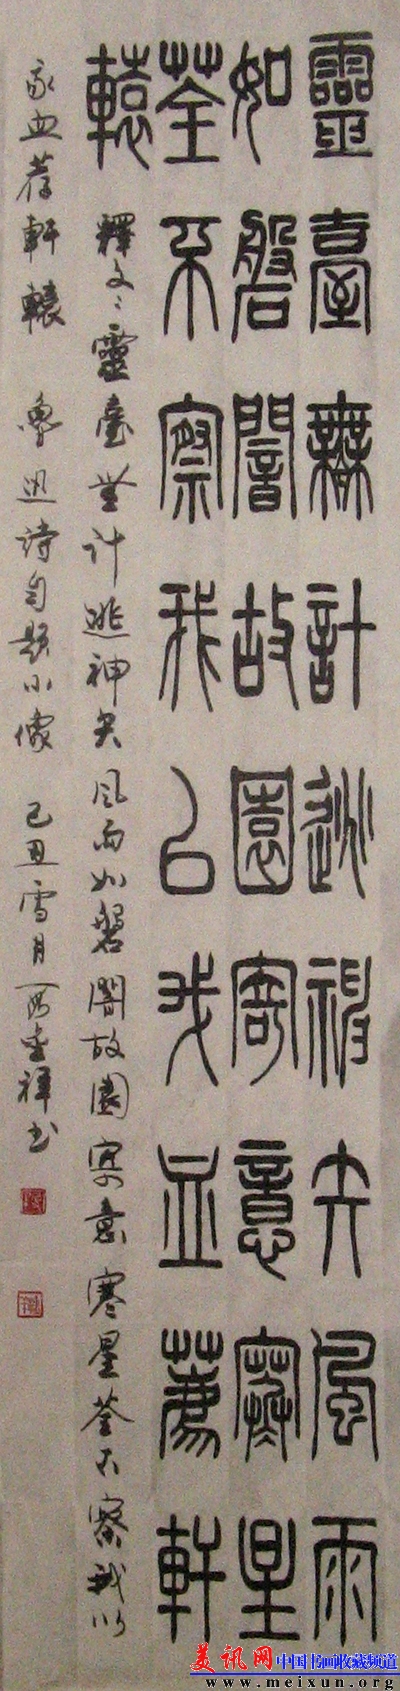 靈臺無計逃神矢風雨
如磐闇故園寄意寒星
荃不察我以我血薦軒
轅
釋文：靈臺無計逃神矢風雨如磐闇故園寄意寒星荃不察我以
我血荐軒轅 魯迅詩自題小像 己丑雪月 祥书
美讯网 中国书画收藏频道
www.meixun.org